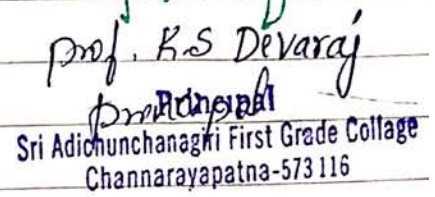 prof. K.S Devaraj
principal
Principal
Sri Adichunchanagiri First Grade Collage
Channarayapatna-573 116